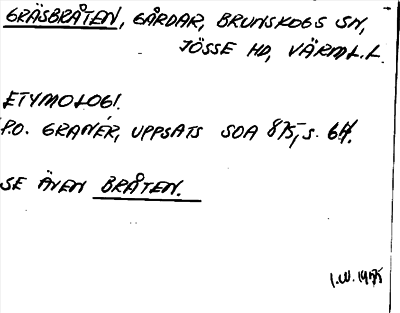 GRÄSBRÅTEN, GÅRDAR, BRUNSKOGS SN,
JÖSSE HD, VÄRML.L.
ETYMOLOGI.
P.O. GRANÉR, UPPSATS SOA 875, S. 64.
SE ÄVEN BRÅTEN.